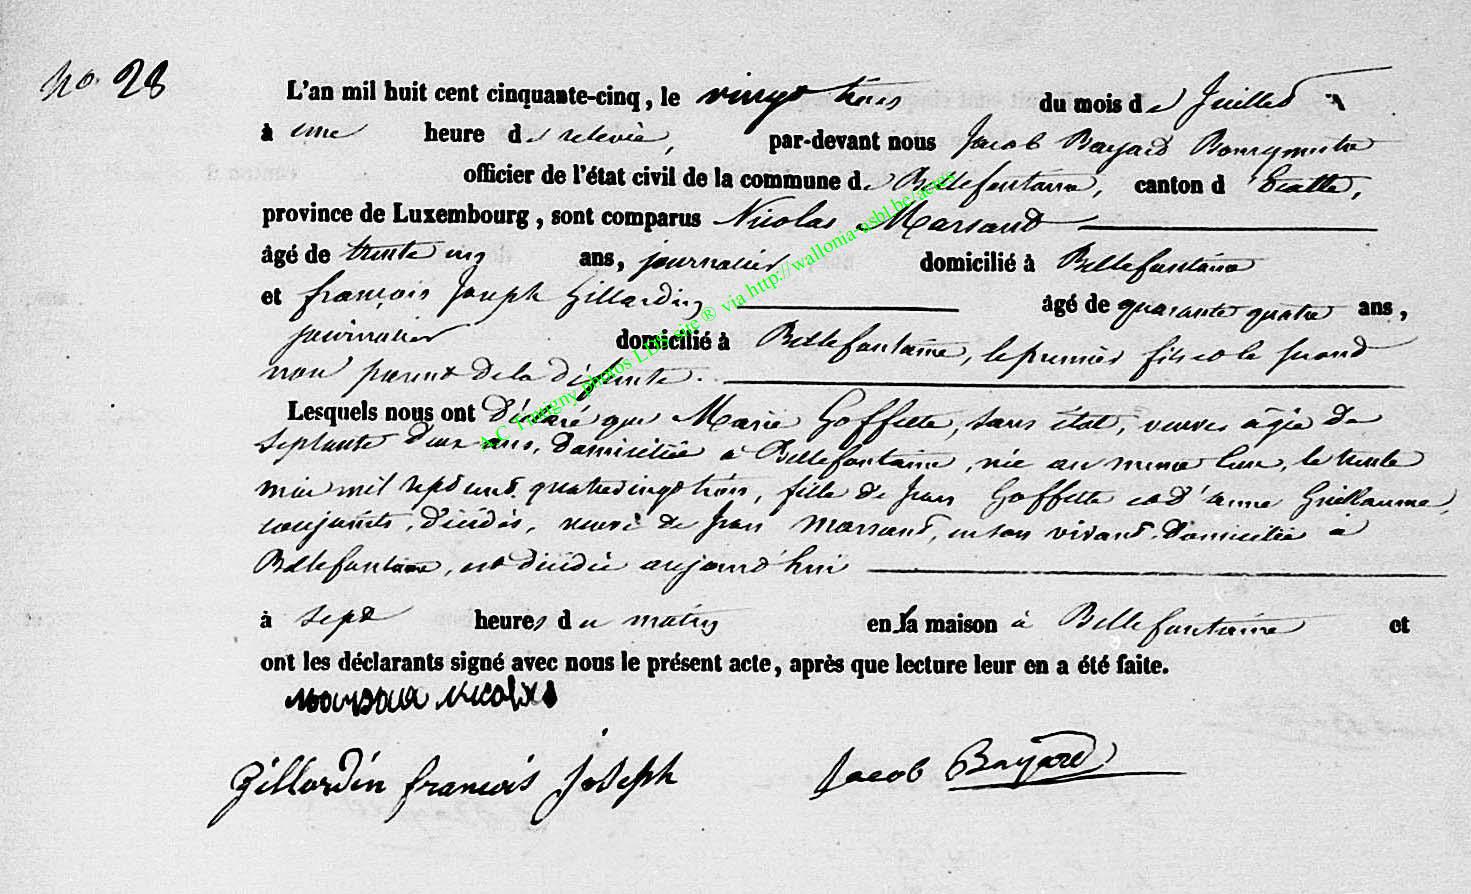 No. 28
L'an mil huit cent cinquante-cinq, le vingt trois du mois de Juillet
à une heure de relevée, par-devant nous Jacob Bayard Bourgmestre
officier de l'état civil de la commune de Bellefontaine, canton d'Etalle,
province de Luxembourg, sont comparus Nicolas Marsand
âgé de trente ans, journalier domicilié à Bellefontaine
et françois Joseph Gillardin âgé de quarante quatre ans,
journalier domicilié à Bellefontaine, le premier fils et le second
non parent de la défunte.
Lesquels nous ont déclaré que Marie Goffette, sans état, veuve âgée de
septante deux ans, domiciliée à Bellefontaine, née au même lieu, le trente
mai mil sept cent quatrevingt trois, fille de Jean Goffette et d'anne Guillaume,
conjoints, décédés, veuve de Jean Marsand, en son vivant domiciliée à
Bellefontaine, est décédée aujourd'hui
à sept heures du matin en sa maison à Bellefontaine et
ont les déclarants signé avec nous le présent acte, après que lecture leur en a été faite.
nicolas
Gillardin françois Joseph Jacob Bayard
A.C. Tintigny photos LDS site ® via http://wallonia-asbl.be/actes